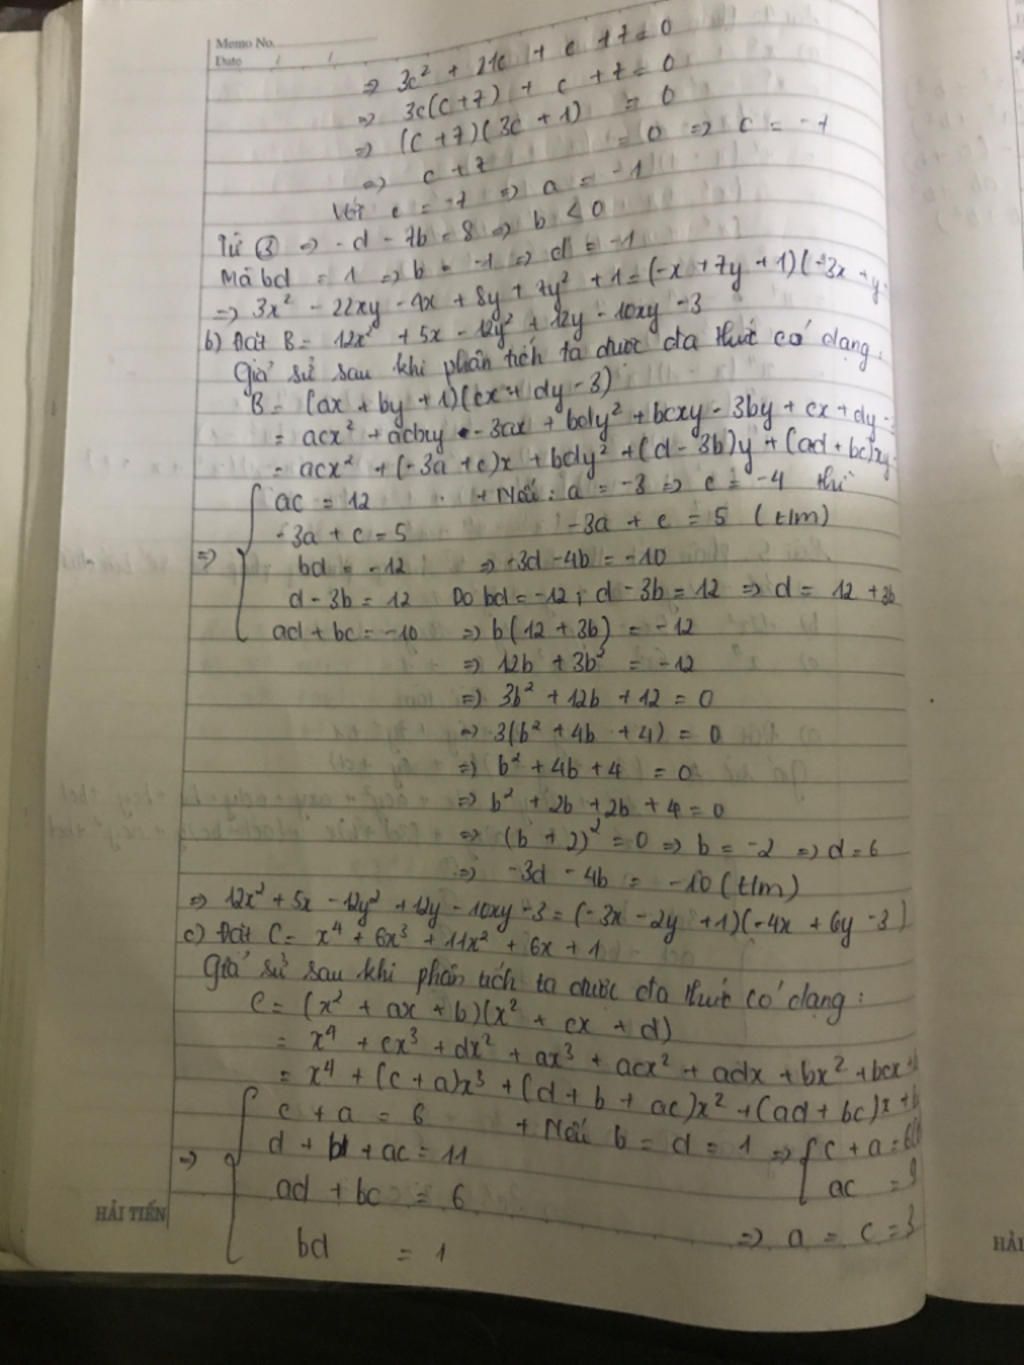 Memo No.
Date / /
=> 3c² + 21c + c + 7 = 0
=> 3c(c+7) + c + 7 = 0
=> (c+7)(3c+1) = 0
=> c + 7 = 0 => c = -7
Với c = -7 => a = -1
Từ ③ => -d - 7b = 8 => b < 0
Mà bd = 1 => b = -1 => d = -1
=> 3x² - 22xy - 4x + 8y + 7y² + 1 = (-x + 7y + 1)(-3x + y
b) Đặt B = 12x² + 5x - 12y² + 12y - 10xy - 3
Giả sử sau khi phân tích ta được đa thức có dạng:
B = (ax + by + 1)(cx + dy - 3)
= acx² + adxy - 3ax + bdy² + bcxy - 3by + cx + dy -
= acx² + (-3a + c)x + bdy² + (d - 3b)y + (ad + bc)xy -
ac = 12 + Nếu: a = -3 => c = -4 thì
-3a + c = 5 -3a + c = 5 (t/m)
=> bd = -12 => -3d - 4b = -10
d - 3b = 12 Do bd = -12; d - 3b = 12 => d = 12 + 3b
ad + bc = -10 => b(12 + 3b) = -12
=> 12b + 3b² = -12
=> 3b² + 12b + 12 = 0
=> 3(b² + 4b + 4) = 0
=> b² + 4b + 4 = 0
=> b² + 2b + 2b + 4 = 0
=> (b + 2)² = 0 => b = -2 => d = 6
=> -3d - 4b = -10 (t/m)
=> 12x² + 5x - 12y² + 12y - 10xy - 3 = (-3x - 2y + 1)(-4x + 6y - 3)
c) Đặt C = x⁴ + 6x³ + 11x² + 6x + 1
Giả sử sau khi phân tích ta được đa thức có dạng:
C = (x² + ax + b)(x² + cx + d)
= x⁴ + cx³ + dx² + ax³ + acx² + adx + bx² + bcx +
= x⁴ + (c + a)x³ + (d + b + ac)x² + (ad + bc)x +
c + a = 6 + Nếu b = d = 1 => c + a = 6
=> d + b + ac = 11 ac = 9
ad + bc = 6 => a = c = 3
bd = 1
HẢI TIẾN
HẢI